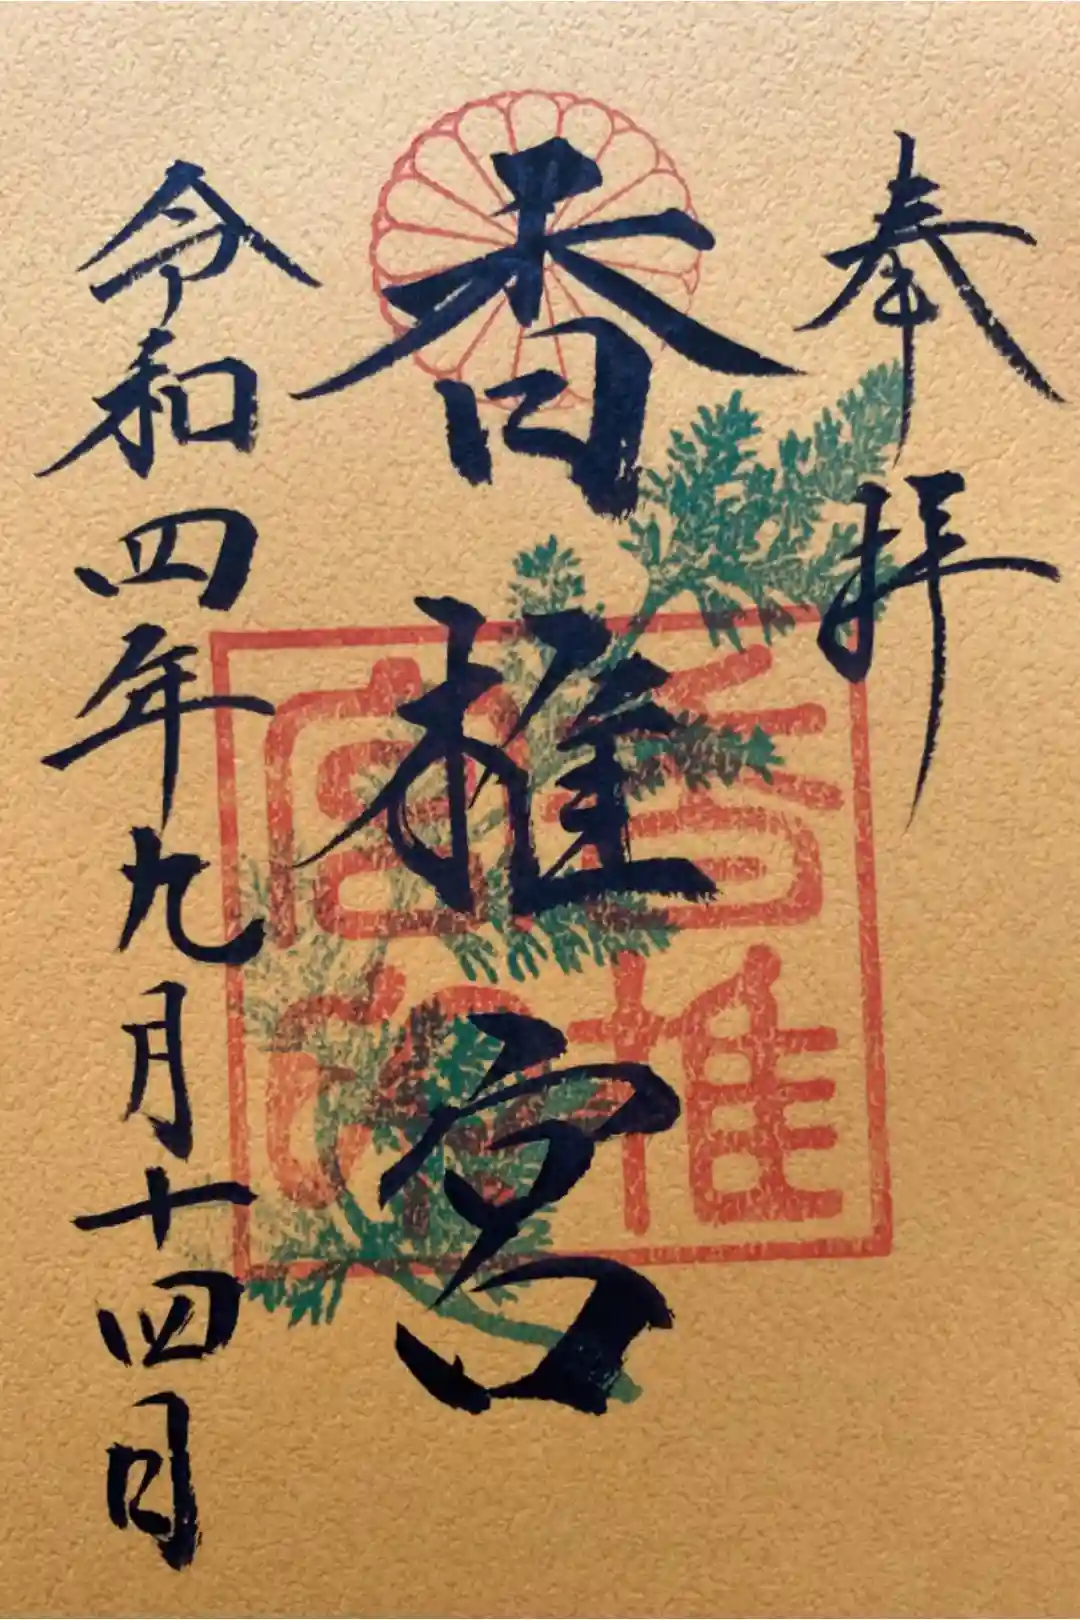 奉拝
香椎宮
令和四年九月十四日
香椎宮印